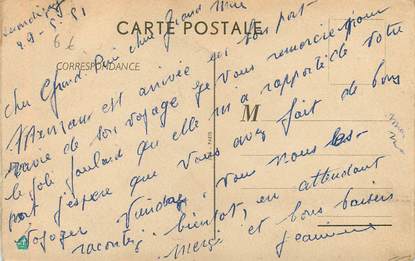 CARTE POSTALE
CORRESPONDANCE
M
PARIS
Cher Grand Père cher Grand'Mère
Maman est arrivée à bon port
ravie de son voyage je vous remercie pour
le joli foulard qu'elle m'a rapporté de votre
part j'espère que vous avez fait de bons
voyages vous nous les
raconterez bientôt, en attendant
merci et bons baisers
Jeannine